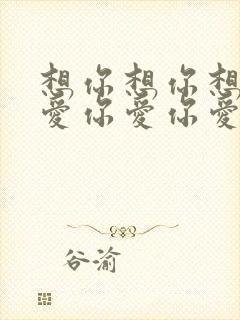 想你想你想
爱你爱你爱
谷渝